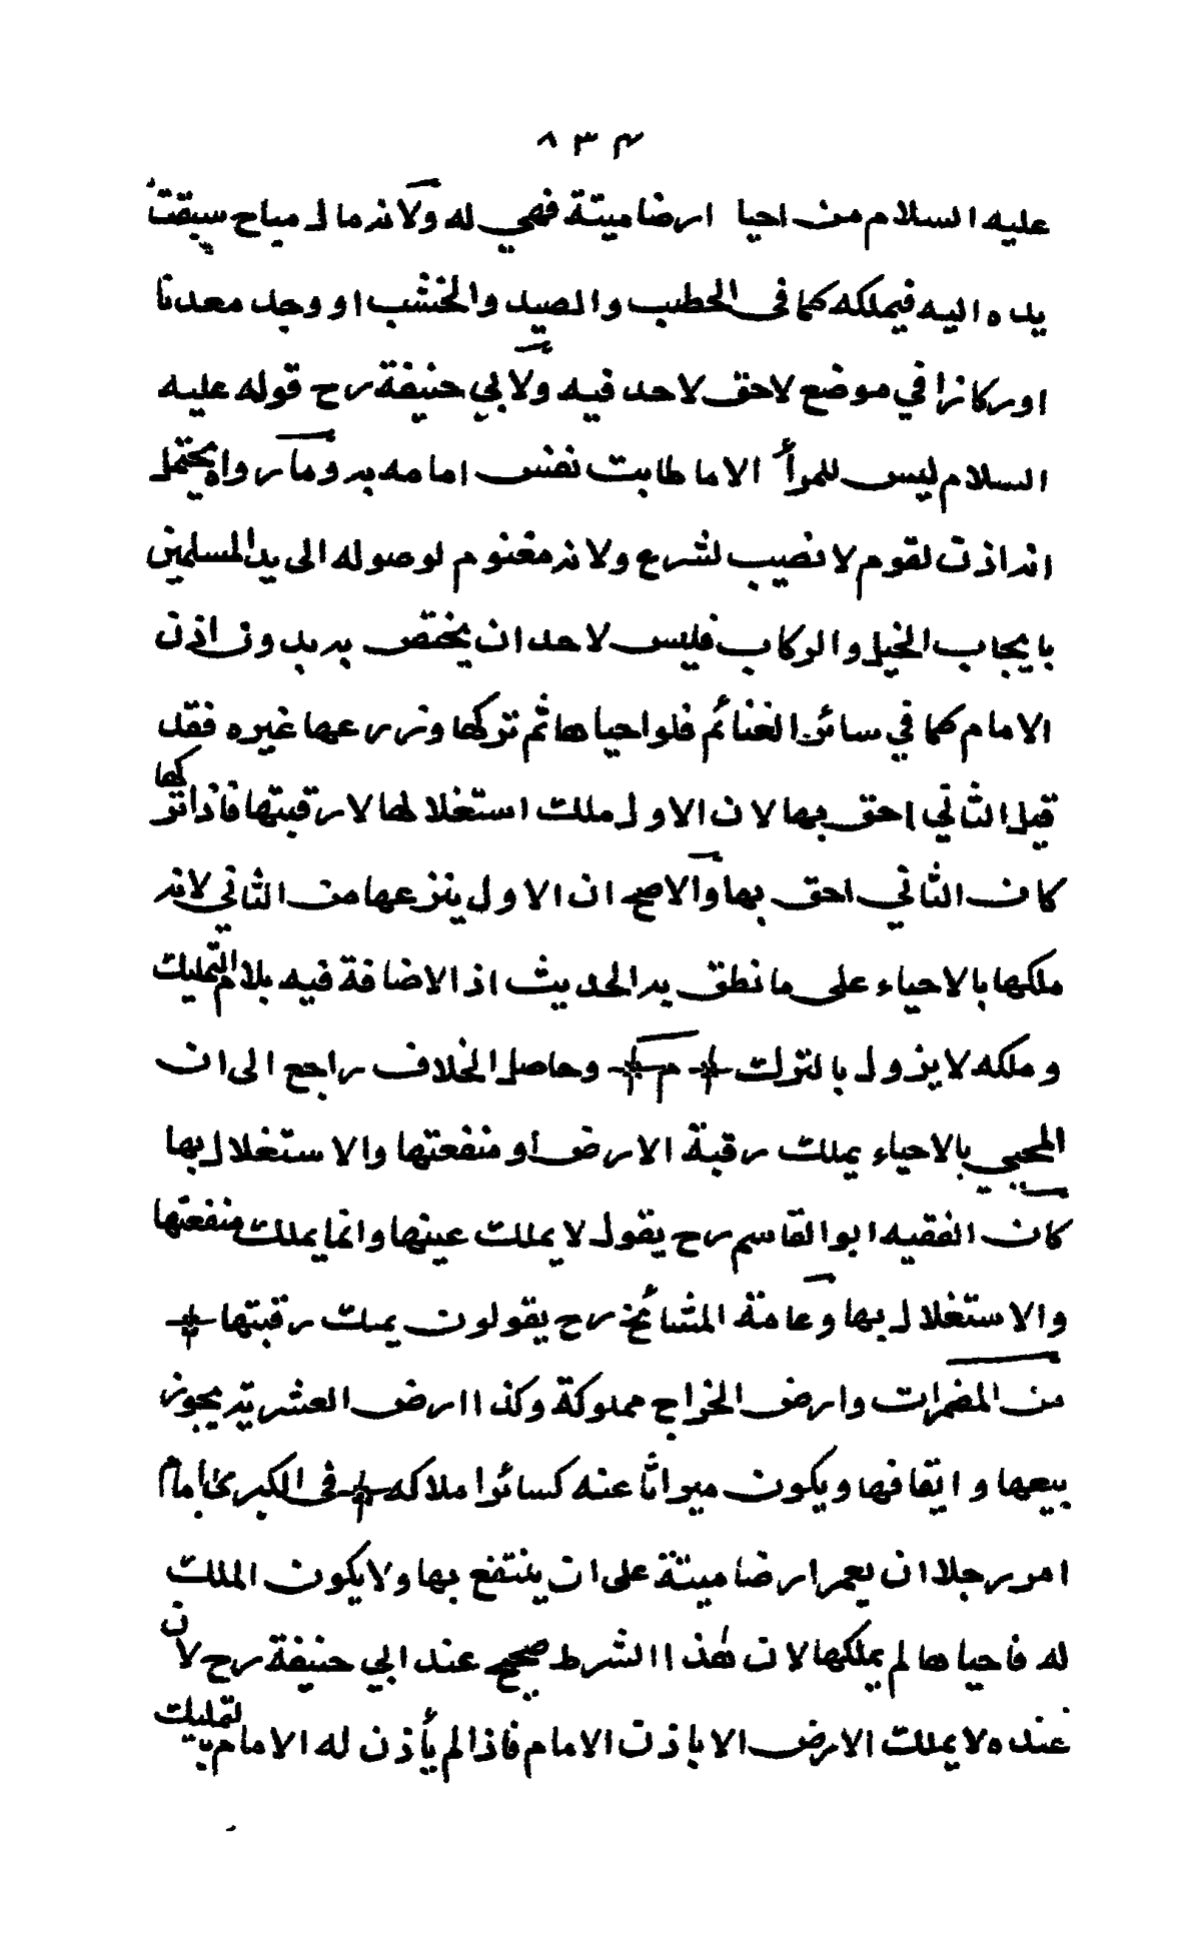 ٨٣٤
عليه السلام من احيا ارضا ميتة فهي له ولانه مال مباح سبقت
يده اليه فيملكه كما فى الحطب والصيد والخشب او وجد معدنا
او ركازا في موضع لاحق لاحد فيه ولابي حنيفة رح قوله عليه
السلام ليس للمرأ الا ما طابت نفس امامه به وما رواه يحتمل
انه اذن لقوم لا نصيب لشرع ولانه مغنوم لوصوله الى يد المسلمين
بايجاب الخيل والركاب فليس لاحد ان يختص به بدون اذن
الامام كما في سائر الغنائم فلو احياها ثم تركها وزرعها غيره فقد
قيل الثاني احق بها لان الاول ملك استغلالها لا رقبتها فاذا تركها
كان الثاني احق بها والاصح ان الاول ينزعها من الثاني لانه
ملكها بالاحياء على ما نطق به الحديث اذ الاضافة فيه بلام التمليك
وملكه لا يزول بالترك م وحاصل الخلاف راجع الى ان
المحيي بالاحياء يملك رقبة الارض او منفعتها والاستغلال بها
كان الفقيه ابو القاسم رح يقول لا يملك عينها وانما يملك منفعتها
والاستغلال بها وعامة المشائخ رح يقولون يملك رقبتها م
من المضمرات وارض الخراج مملوكة وكذا ارض العشرية يجوز
بيعها وايقافها ويكون ميراثا عنه كسائر املاكه م فى الكبرى امام
امر رجلا ان يعمر ارضا ميتة على ان ينتفع بها ولا يكون الملك
له فاحياها لم يملكها لان هذا الشرط صحيح عند ابي حنيفة رح لان
عنده لا يملك الارض الا باذن الامام فاذا لم يأذن له الامام بالتمليك